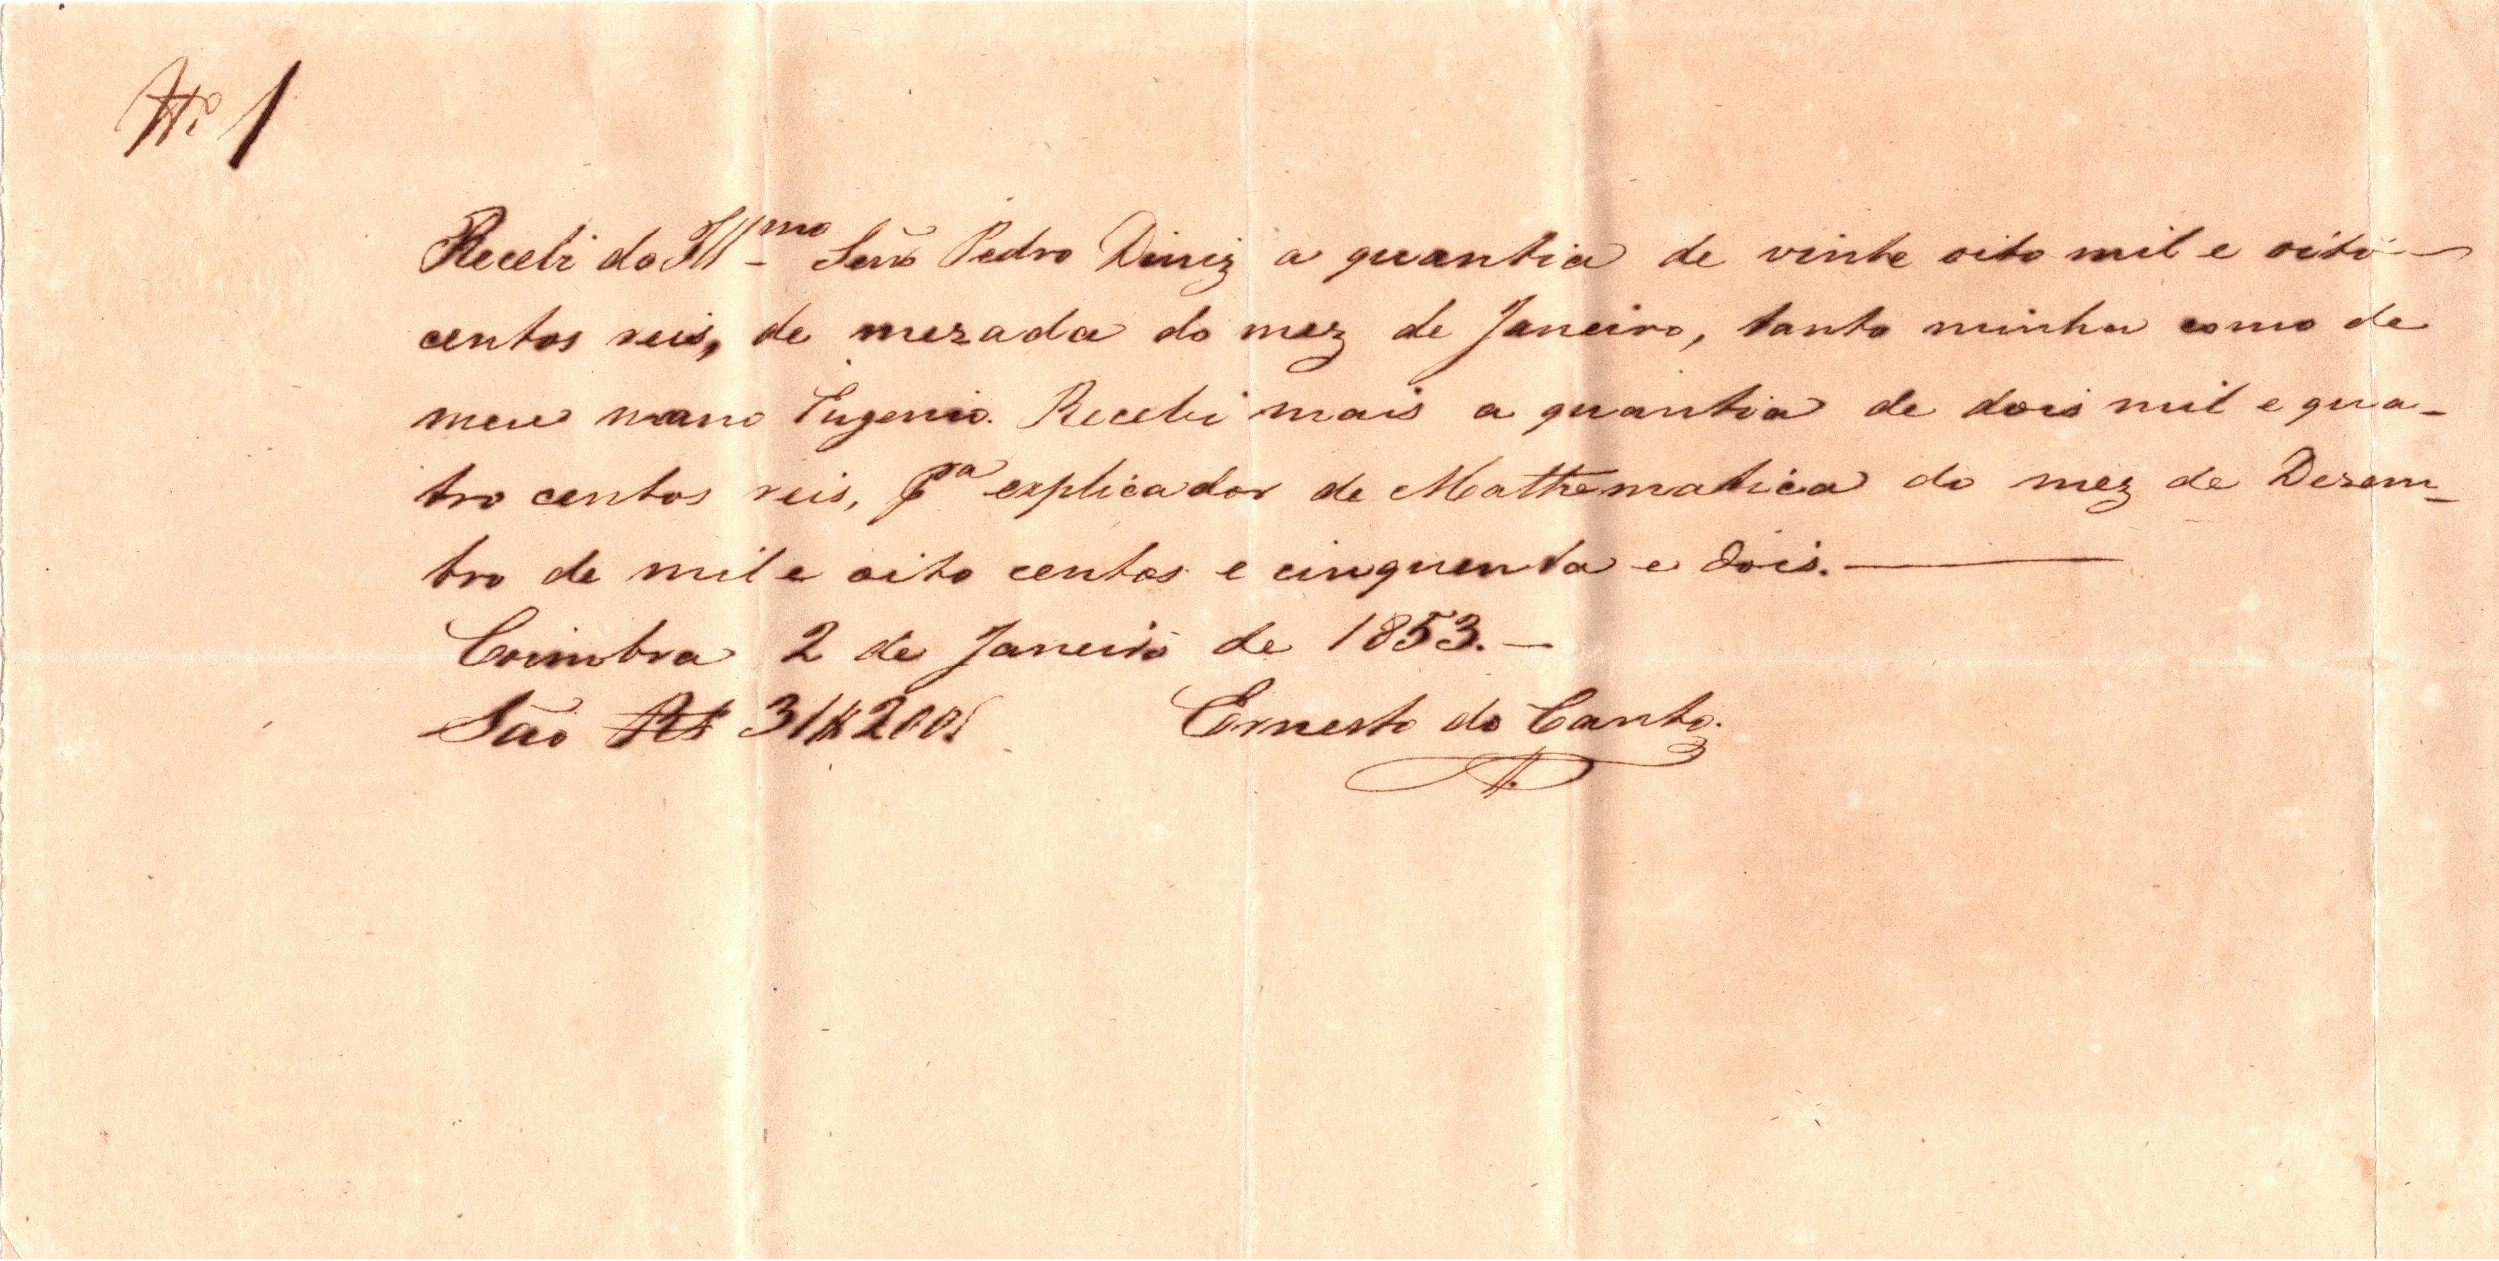 Nº 1
Recebi do Illmo Senr Pedro Diniz a quantia de vinte oito mil e oito
centos reis, de mezada do mez de Janeiro, tanto minha como de
meu mano Eugenio. Recebi mais a quantia de dois mil e qua-
tro centos reis, pra explicador de Mathematica do mez de Dezem-
bro de mil e oito centos e cinquenta e dois.
Coimbra 2 de Janeiro de 1853.-
São Rs 31$200
Ernesto do Canto.